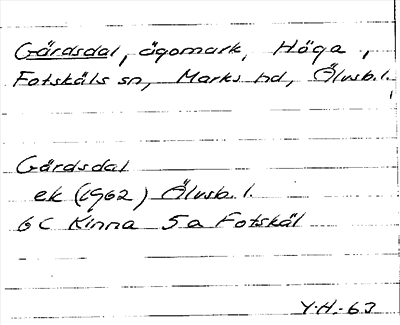 Gårdsdal, ägomark, Höga,
Fotskäls sn, Marks hd, Älvsb. l.
Gårdsdal
ek (1962) Älvsb. l.
6 C Kinna 5a Fotskäl
Y.H.-63